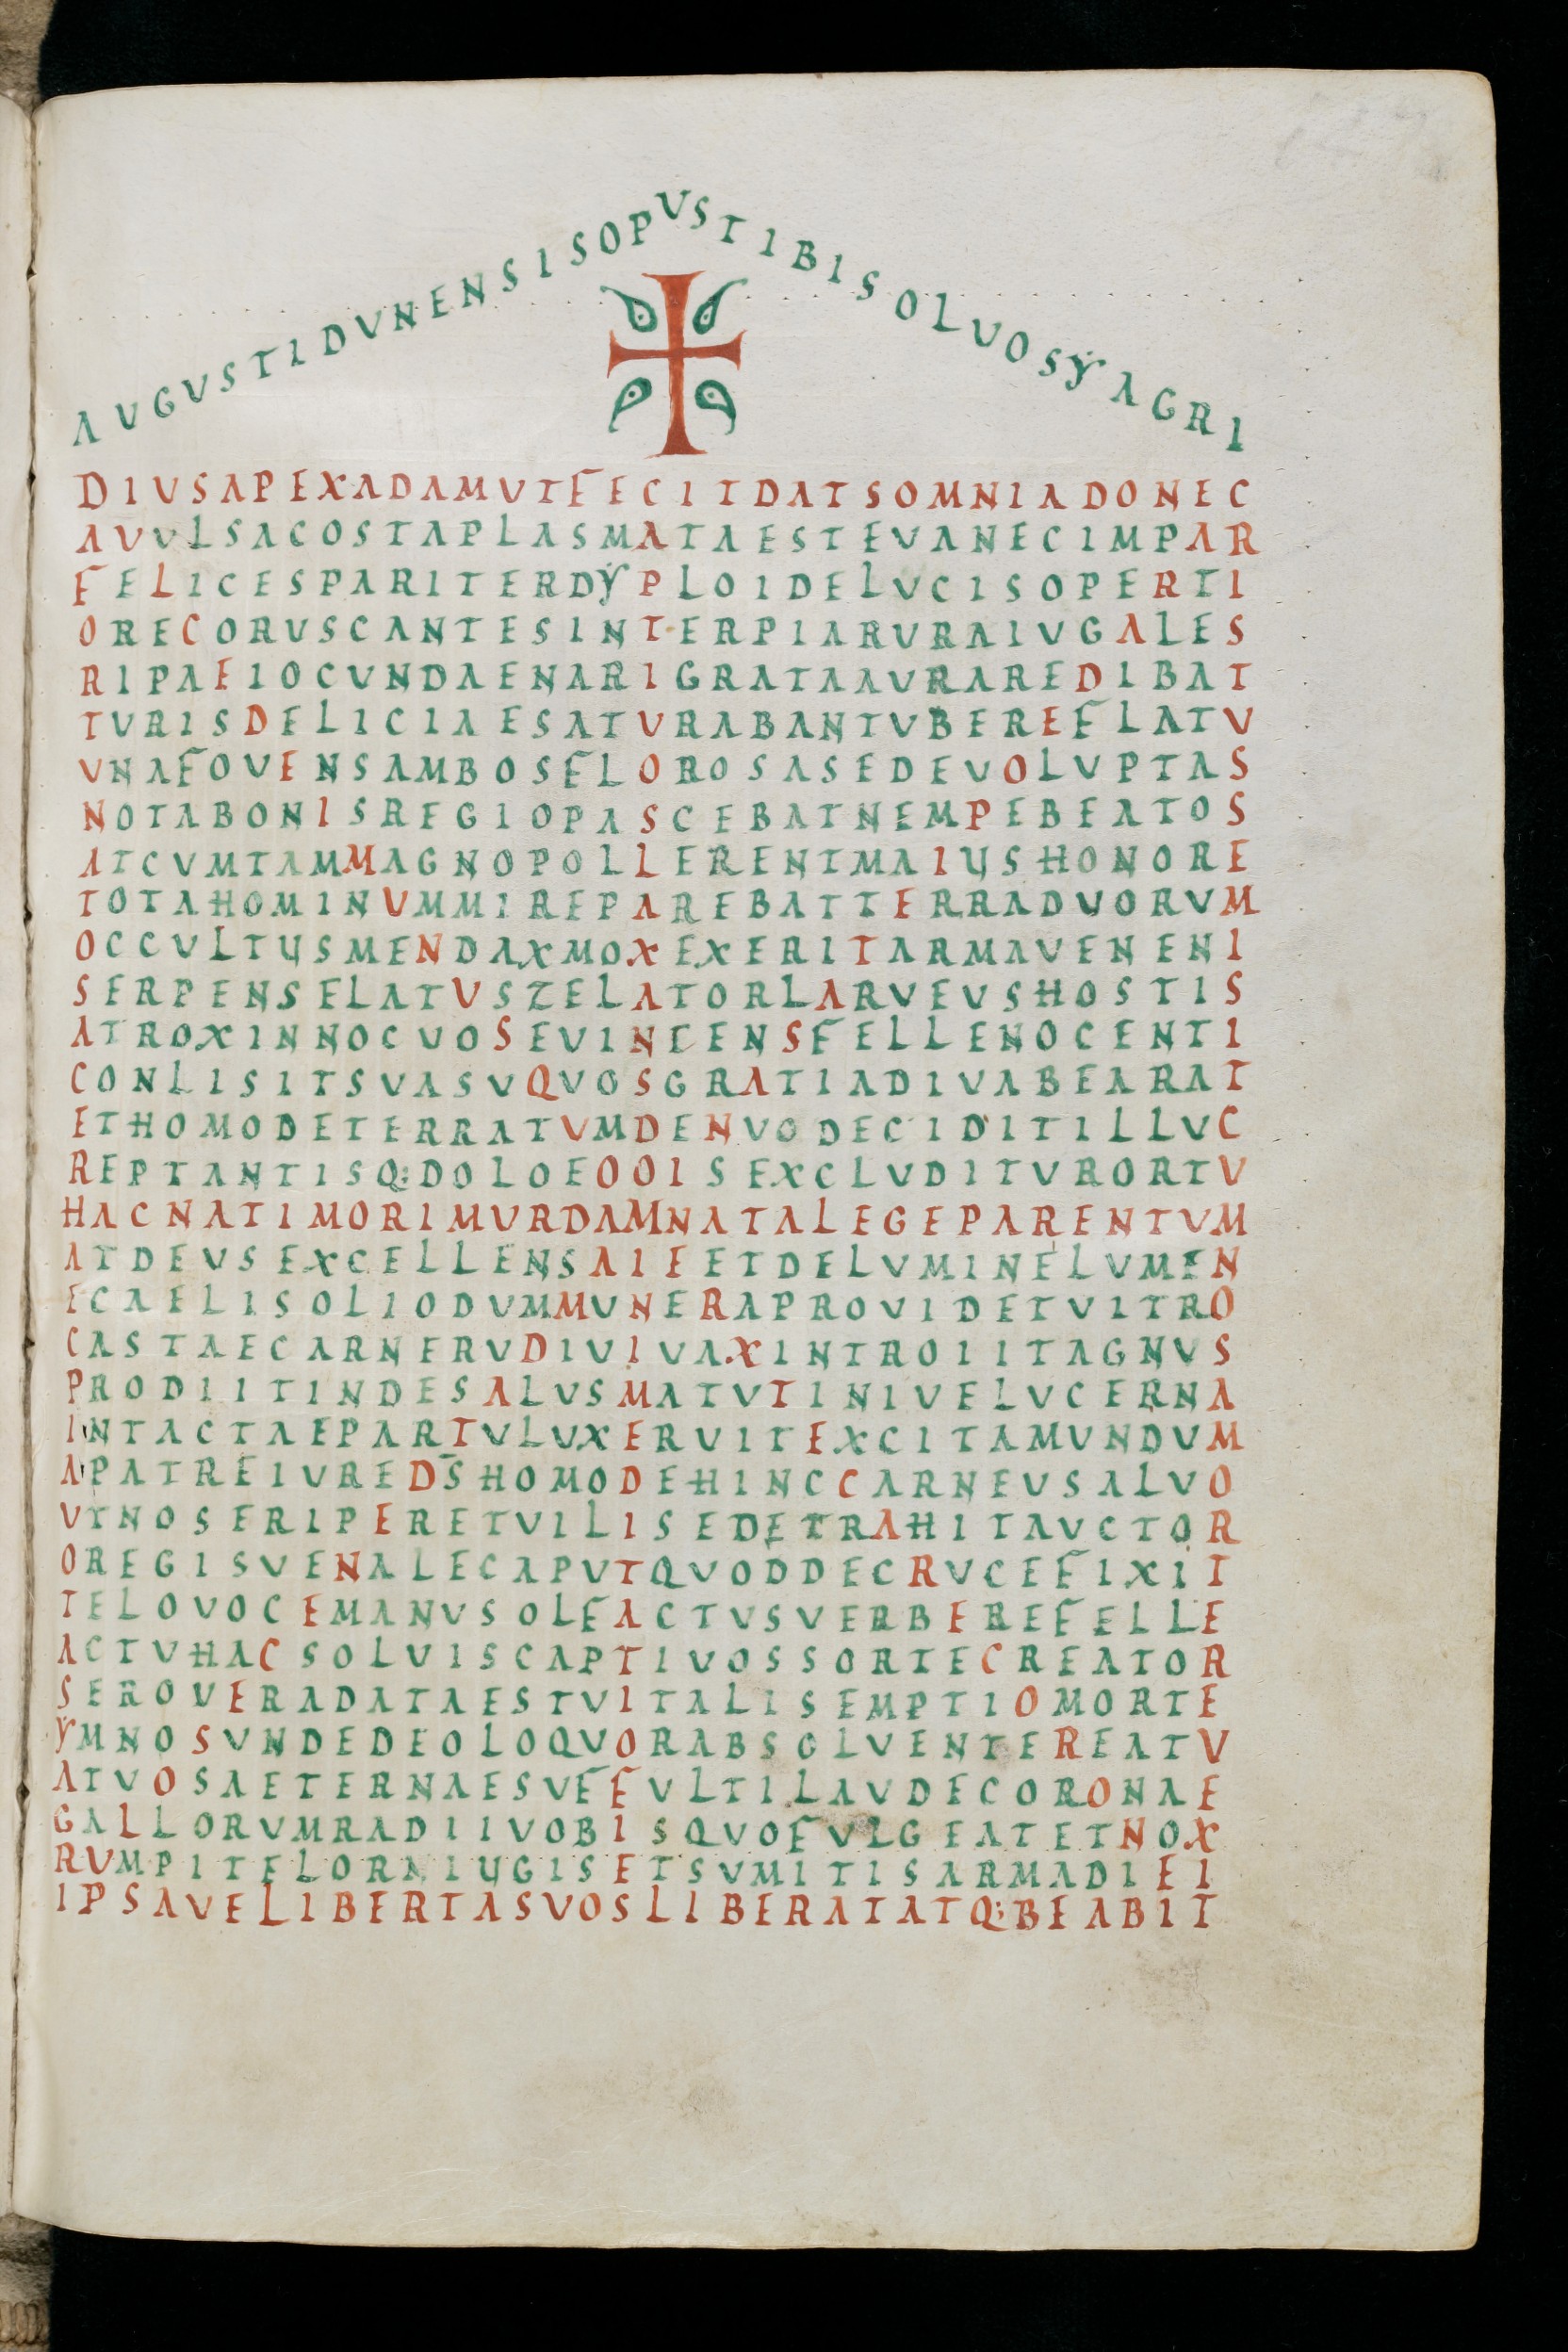 AVGVSTIDVNENSISOPVSTIBISOLVOSYAGRI
DIVSAPEXADAMVTFECITDATSOMNIADONEC
AVVLSACOSTAPLASMATAESTEVANECIMPAR
FELICESPARITERDYPLOIDELVCISOPERTI
ORECORVSCANTESINTERPIARVRAIVGALES
RIPAEIOCVNDAENARIGRATAAVRAREDIBAT
TVRISDELICIAESATVRABANTVBEREFLATV
VNAFOVENSAMBOSFLOROSASEDEVOLVPTAS
NOTABONISREGIOPASCEBATNEMPEBEATOS
ATCVMTAMMAGNOPOLLERENTMAIVSHONORE
TOTAHOMINVMMIREPAREBATTERRADVORVM
OCCVLTVSMENDAXMOXEXERITARMAVENENI
SERPENSELATVSZELATORLARVEVSHOSTIS
ATROXINNOCVOSEVINCENSFELLENOCENTI
CONLISITSVASVQVOSGRATIADIVABEARAT
ETHOMODETERRATVMDENVODECIDITILLVC
REPTANTISQ:DOLOEOOISEXCLVDITVRORTV
HACNATIMORIMVRDAMNATALEGEPARENTVM
ATDEVSEXCELLENSAIEETDELVMINELVMEN
ECAELISOLIODVMMVNERAPROVIDETVITRO
CASTAECARNERVDIVIVAXINTROIITAGNVS
PRODIITINDESALVSMATVTINIVELVCERNA
INTACTAEPARTVLVXERVITEXCITAMVNDVM
APATREIVREDS̄HOMODEHINCCARNEVSALVO
VTNOSERIPERETVILISEDETRAHITAVCTOR
OREGISVENALECAPVTQVODDECRVCEFIXIT
TELOVOCEMANVSOLFACTVSVERBEREFELLE
ACTVHACSOLVISCAPTIVOSSORTECREATOR
SEROVERADATAESTVITALISEMPTIOMORTE
YMNOSVNDEDEOLOQVORABSOLVENTEREATV
ATVOSAETERNAESVFFVLTILAVDECORONAE
GALLORVMRADIIVOBISQVOFVLGEATETNOX
RVMPITELORNIVGISETSVMITISARMADIEI
IPSAVELIBERTASVOSLIBERATATQ:BEABIT